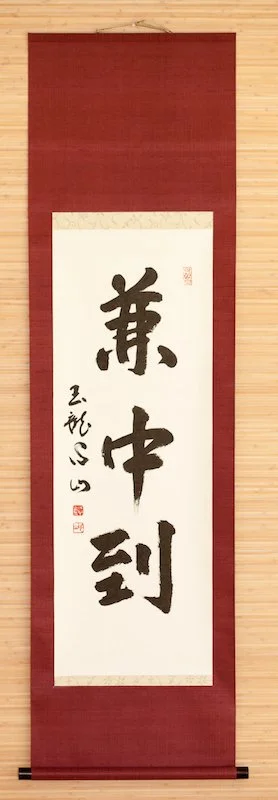 兼中到
玉龍